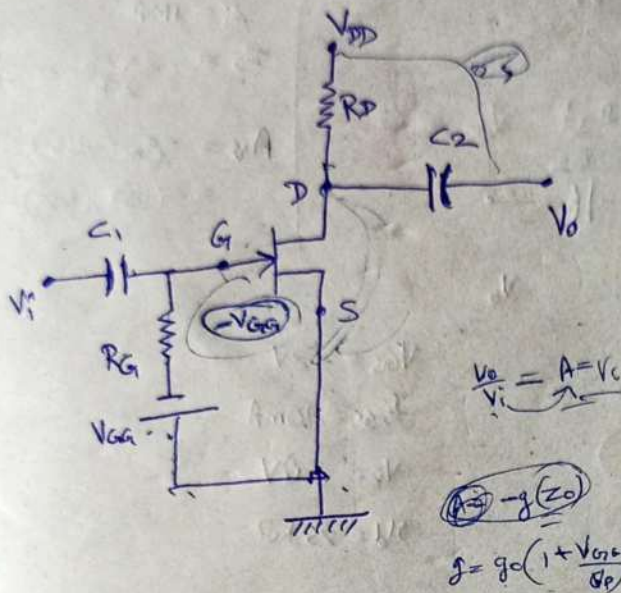 V_DD
R_D
C2
D
V_o
C_1
G
V_i
-V_GG
S
R_G
V_GG
V_o/V_i = A = V
A = -g(Z_o)
g = g_o(1 + V_GG/V_p)